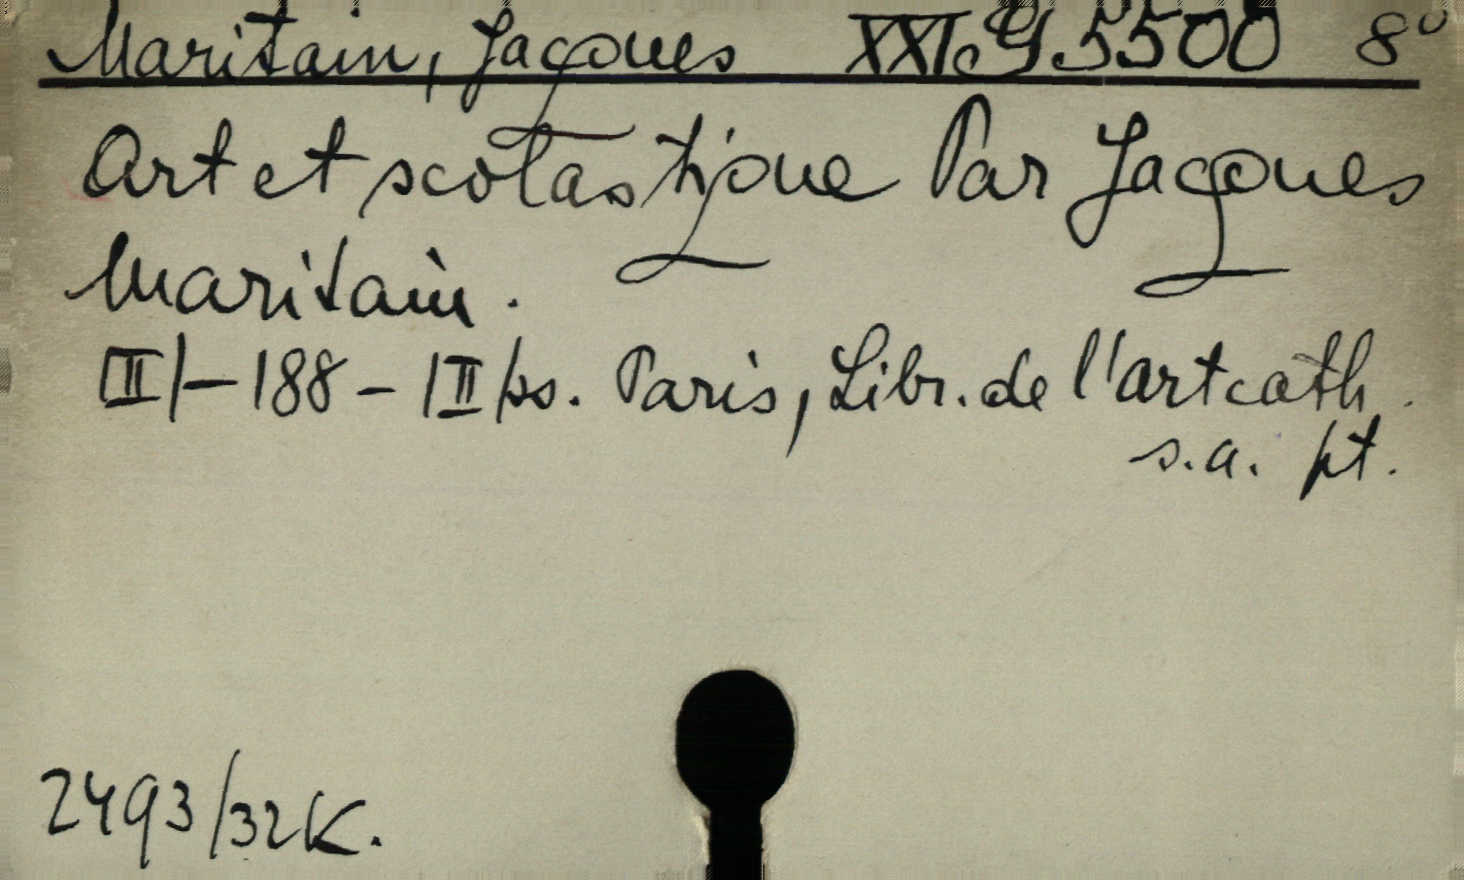 Maritain, Jacques XXI.G.5500 8°
Art et scolastique Par Jacques
Maritain.
|II|-188-|II|ps. Paris, Libr. de l'art cath.
s.a. pt.
2493/32K.